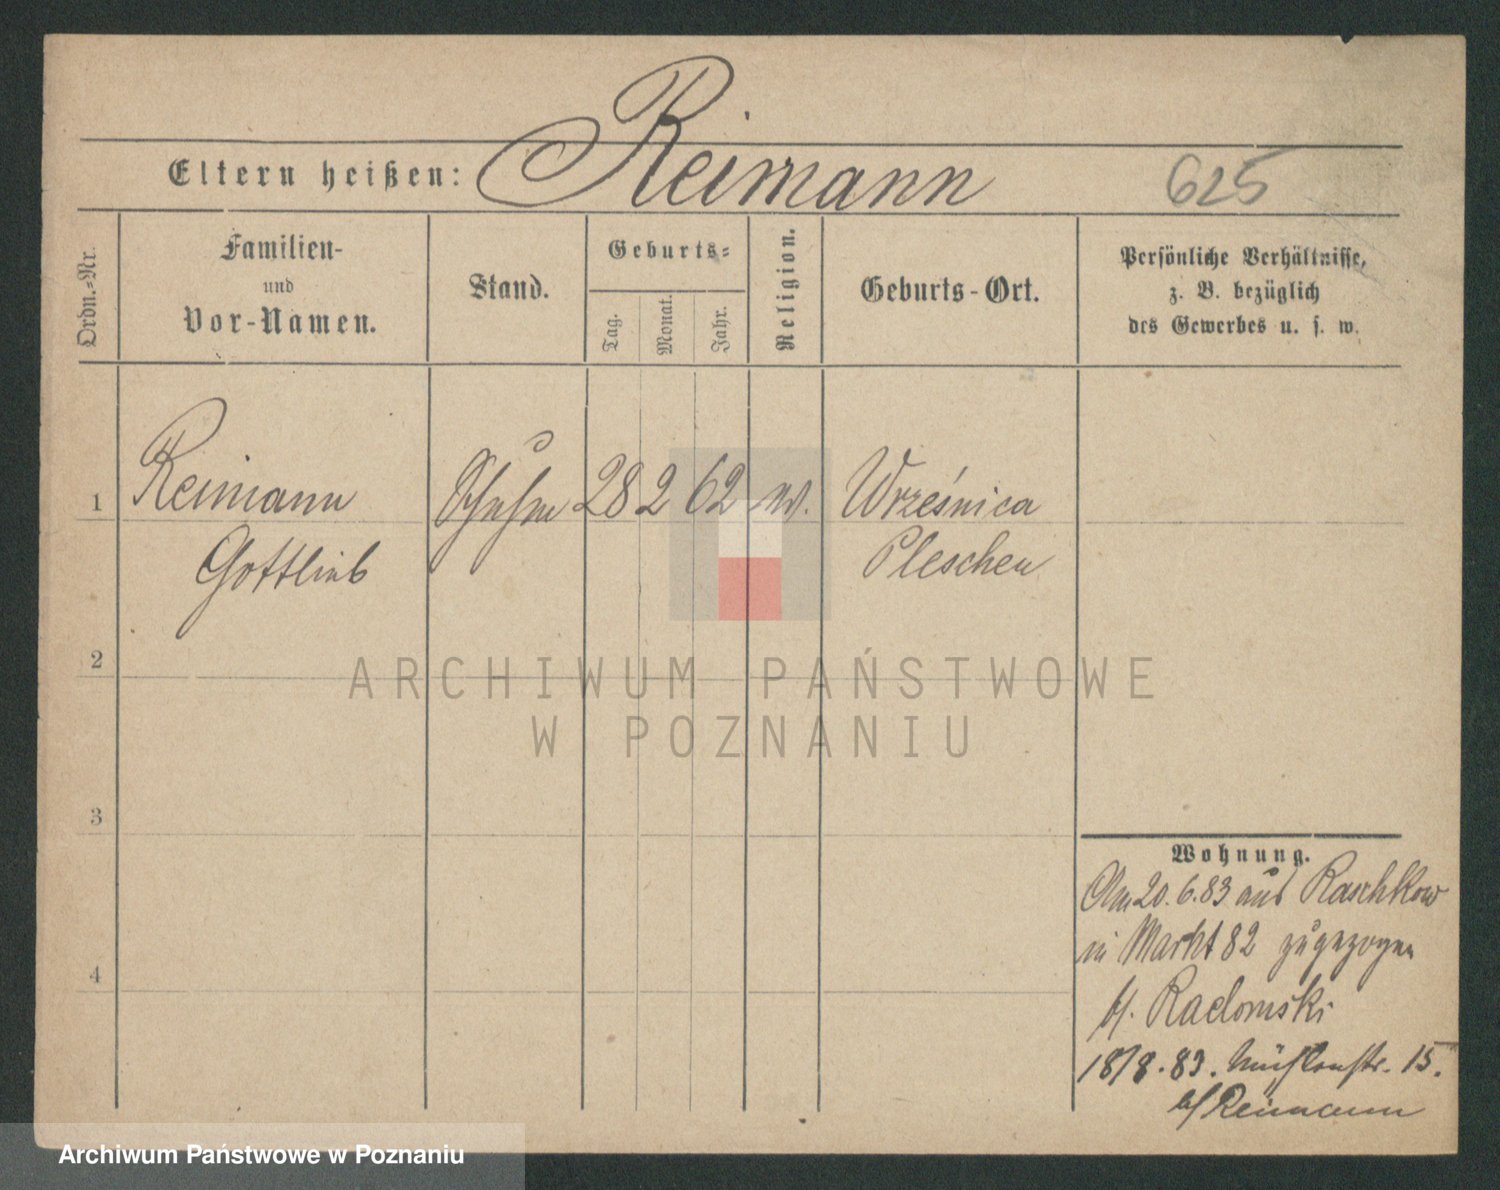 Eltern heißen: Reimann 625
Ordn.-Nr.
Familien-
und
Vor-Namen.
Stand.
Geburts-
Tag.
Monat.
Jahr.
Religion.
Geburts-Ort.
Persönliche Verhältnisse,
z. B. bezüglich
des Gewerbes u. s. w.
1 Reimann 28 2 62 Wrześnica
Gottlieb Pleschen
2
ARCHIWUM PAŃSTWOWE
W POZNANIU
3
4
Wohnung.
Am 20.6.83 aus Raschkow
in Markt 82 zugezogen
b/. Radomski
18/8.83. Mühlenstr. 15.
b/ Reimann
Archiwum Państwowe w Poznaniu